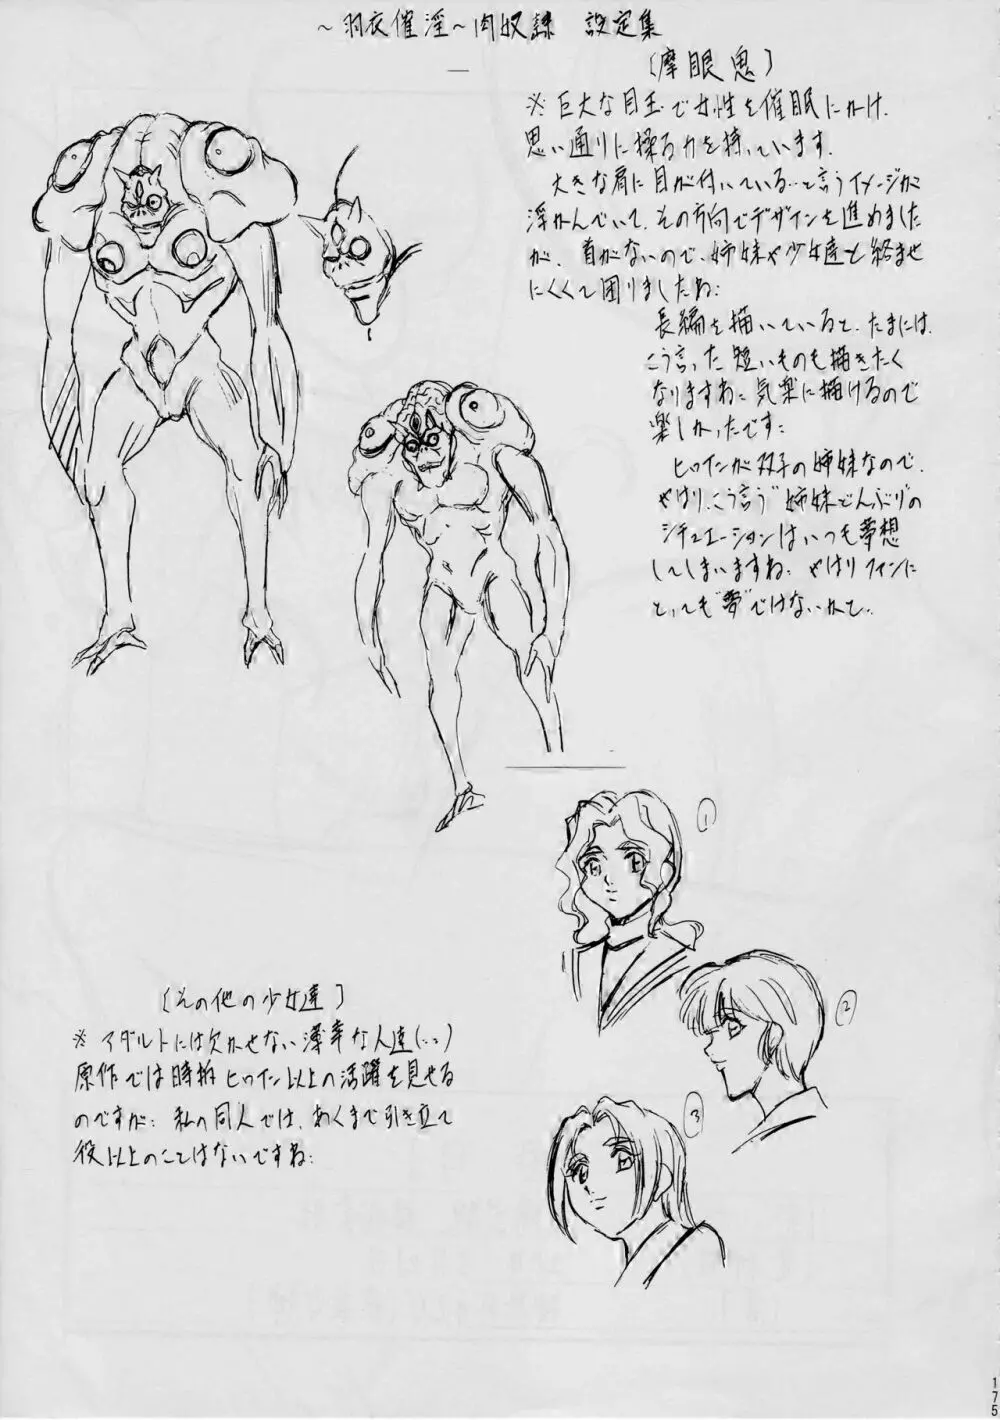 ～羽衣催淫～肉奴隷　設定集
〔摩眼鬼〕
※巨大な目玉で女性を催眠にかけ、
思い通りに操る力を持っています。
大きな肩に目が付いている…と言うイメージが
浮かんでいて、その方向でデザインを進めました
が、首がないので、姉妹や少女達と絡ませ
にくくて困りましたね…
長編を描いていると、たまには、
こう言った短いものも描きたく
なりますね…気楽に描けるので
楽しかったです…
ヒロインが双子の姉妹なので、
やはり、こう言う“姉妹どんぶり”の
シチュエーションはいつも夢想
してしまいますね、やはりファンに
とっても“夢”ではないかと…
①
②
③
〔その他の少女達〕
※アダルトには欠かせない薄幸な人達(…)
原作では時折ヒロイン以上の活躍を見せる
のですが…私の同人では、あくまで引き立て
役以上のことはないですね…
175